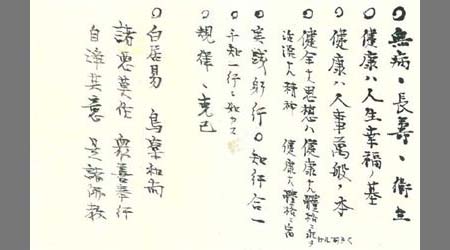 ○無病、長壽、衛生
○健康ハ人生幸福ノ基
○健康ハ人事萬般ノ本
○健全ナ思想ハ健康ナ體格ニ
活溌ナ精神 健康ナ體格ニ宿
○実践躬行○知行合一
○千知一行ニ
○規律、克己
○白居易 鳥窠和尚
諸悪莫作 衆善奉行
自淨其意 是諸佛教